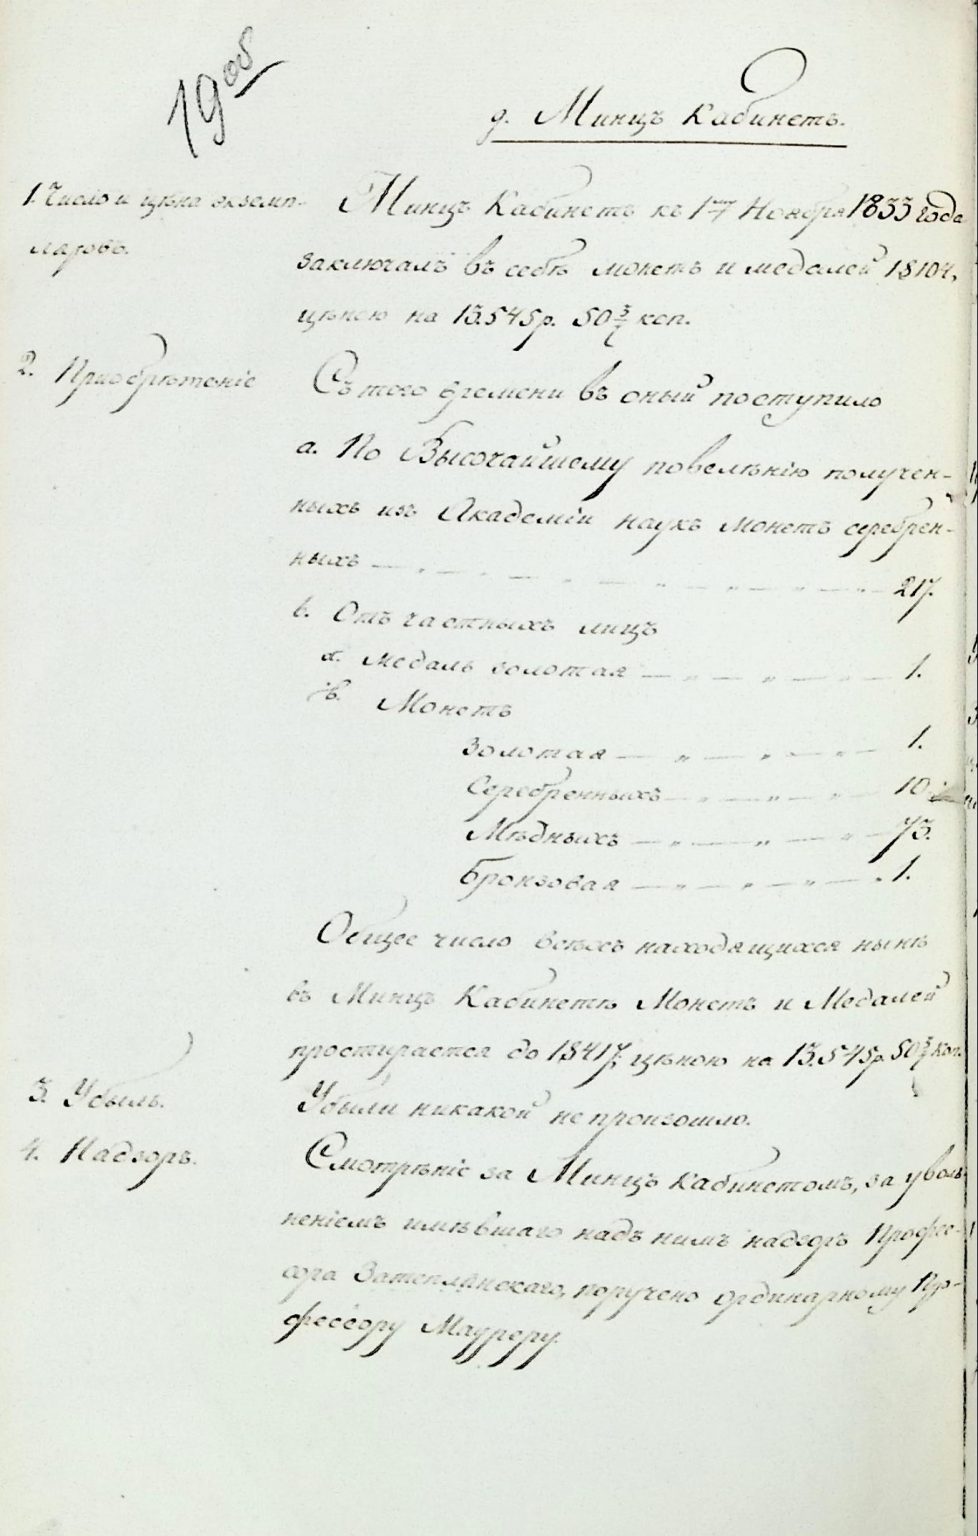 19 об
д. Минцъ Кабинетъ.
1. Число и цѣна экземп-
ляровъ.
Минцъ Кабинетъ къ 1му Ноября 1833 года
заключалъ въ себѣ монетъ и медалей 18104,
цѣною на 13.545 р. 50 3/7 коп.
2. Приобрѣтенiе
Съ того времени въ оный поступило
а. По Высочайшему повелѣнiю получен-
ныхъ изъ Академiи наукъ монетъ серебрен-
ныхъ — „ — „ — „ — „ — 217.
b. Отъ частныхъ лицъ
α. Медаль золотая — „ — „ — „ — 1.
β. Монетъ
Золотая — „ — „ — „ — 1.
Серебренныхъ — „ — „ — „ — 10.
Мѣдныхъ — „ — „ — „ — 73.
Бронзовая — „ — „ — „ — 1.
Общее число всѣхъ находящихся нынѣ
въ Минцъ Кабинетѣ Монетъ и Медалей
простирается до 18417, цѣною на 13.545 р. 50 3/7 коп.
3. Убыль.
Убыли никакой не произошло.
4. Надзоръ.
Смотрѣнiе за Минцъ Кабинетомъ, за уволь-
ненiемъ имѣвшаго надъ нимъ надзоръ Профес-
сора Затеплинскаго, поручено ординарному Про-
фессору Мауреру.